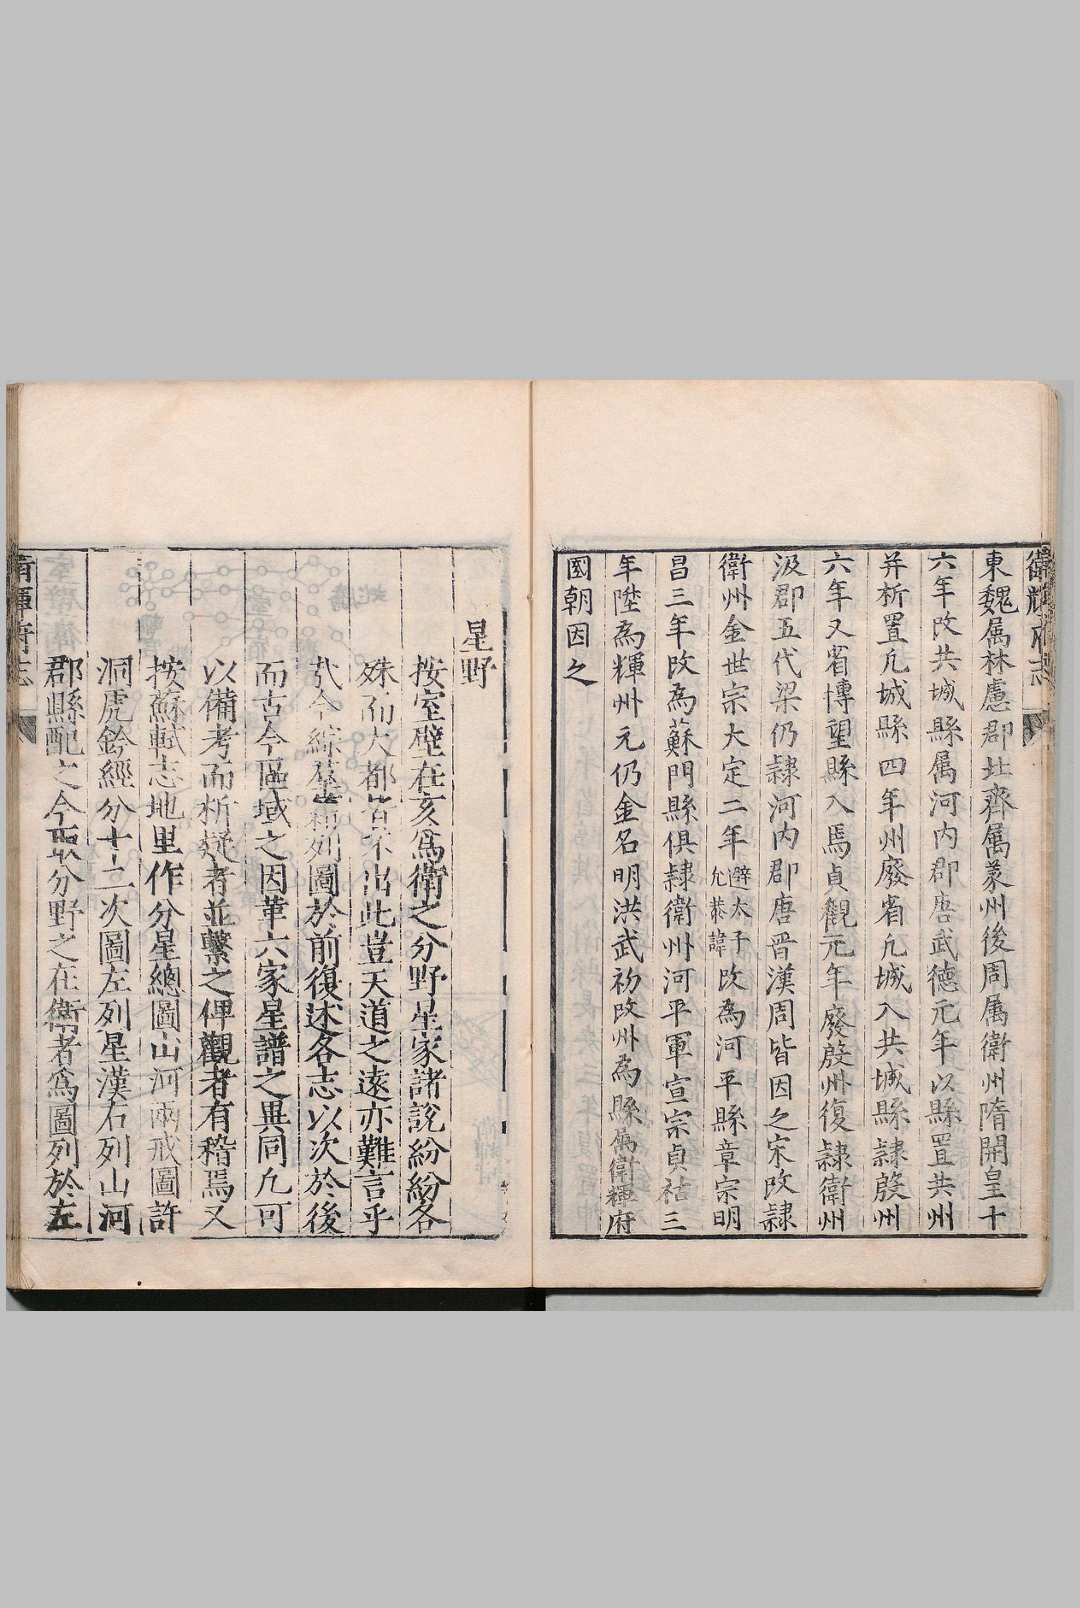 衛輝府志
東魏属林慮郡北齊属蒙州後周属衛州隋開皇十
六年改共城縣属河内郡唐武德元年以縣置共州
并析置凡城縣四年州廢省凡城入共城縣隷殷州
六年又省博望縣入焉貞觀元年廢殷州復隷衛州
汲郡五代梁仍隷河内郡唐晋漢周皆因之宋改隷
衛州金世宗大定二年避太子允恭諱改為河平縣章宗明
昌三年改為蘇門縣俱隷衛州河平軍宣宗貞祐三
年陞為輝州元仍金名明洪武初改州為縣属衛輝府
國朝因之
星野
按室壁在亥爲衛之分野星家諸說紛紛各
殊而大都皆不出此豈天道之遠亦難言乎
茲今綜羣籍列圖於前復述各志以次於後
而古今區域之因革六家星譜之異同凡可
以備考而析疑者並繫之俾觀者有稽焉又
按蘇軾志地里作分星總圖山河兩戒圖許
洞虎鈐經分十二次圖左列星漢右列山河
郡縣配之今取分野之在衛者爲圖列於左
衛輝府志